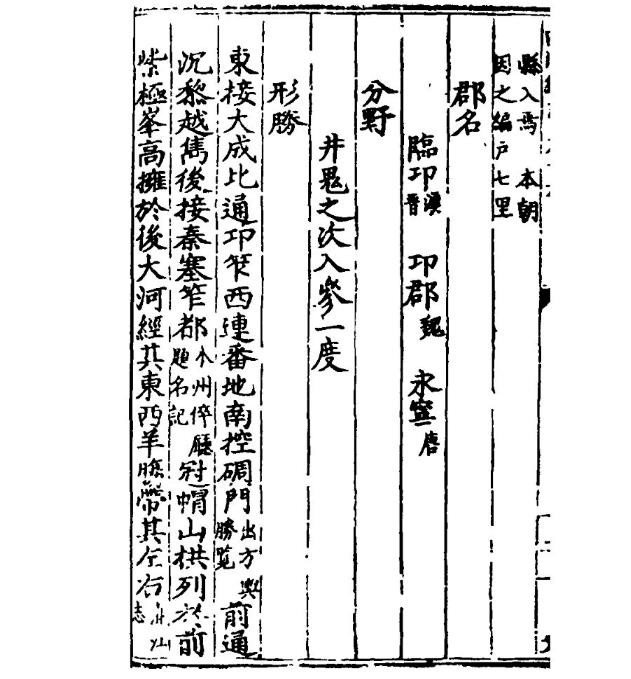 縣入焉 本朝
因之編戶七里
郡名
臨卭漢晉 卭郡魏 永寧唐
分野
井鬼之次入參一度
形勝
東接大成比通卭笮西連番地南控碉門出方輿勝覽前通
沉黎越雋後接秦塞笮都本州倅廳題名記冠帽山拱列於前
紫極峯高擁於後大河經其東西羊帶其左右志